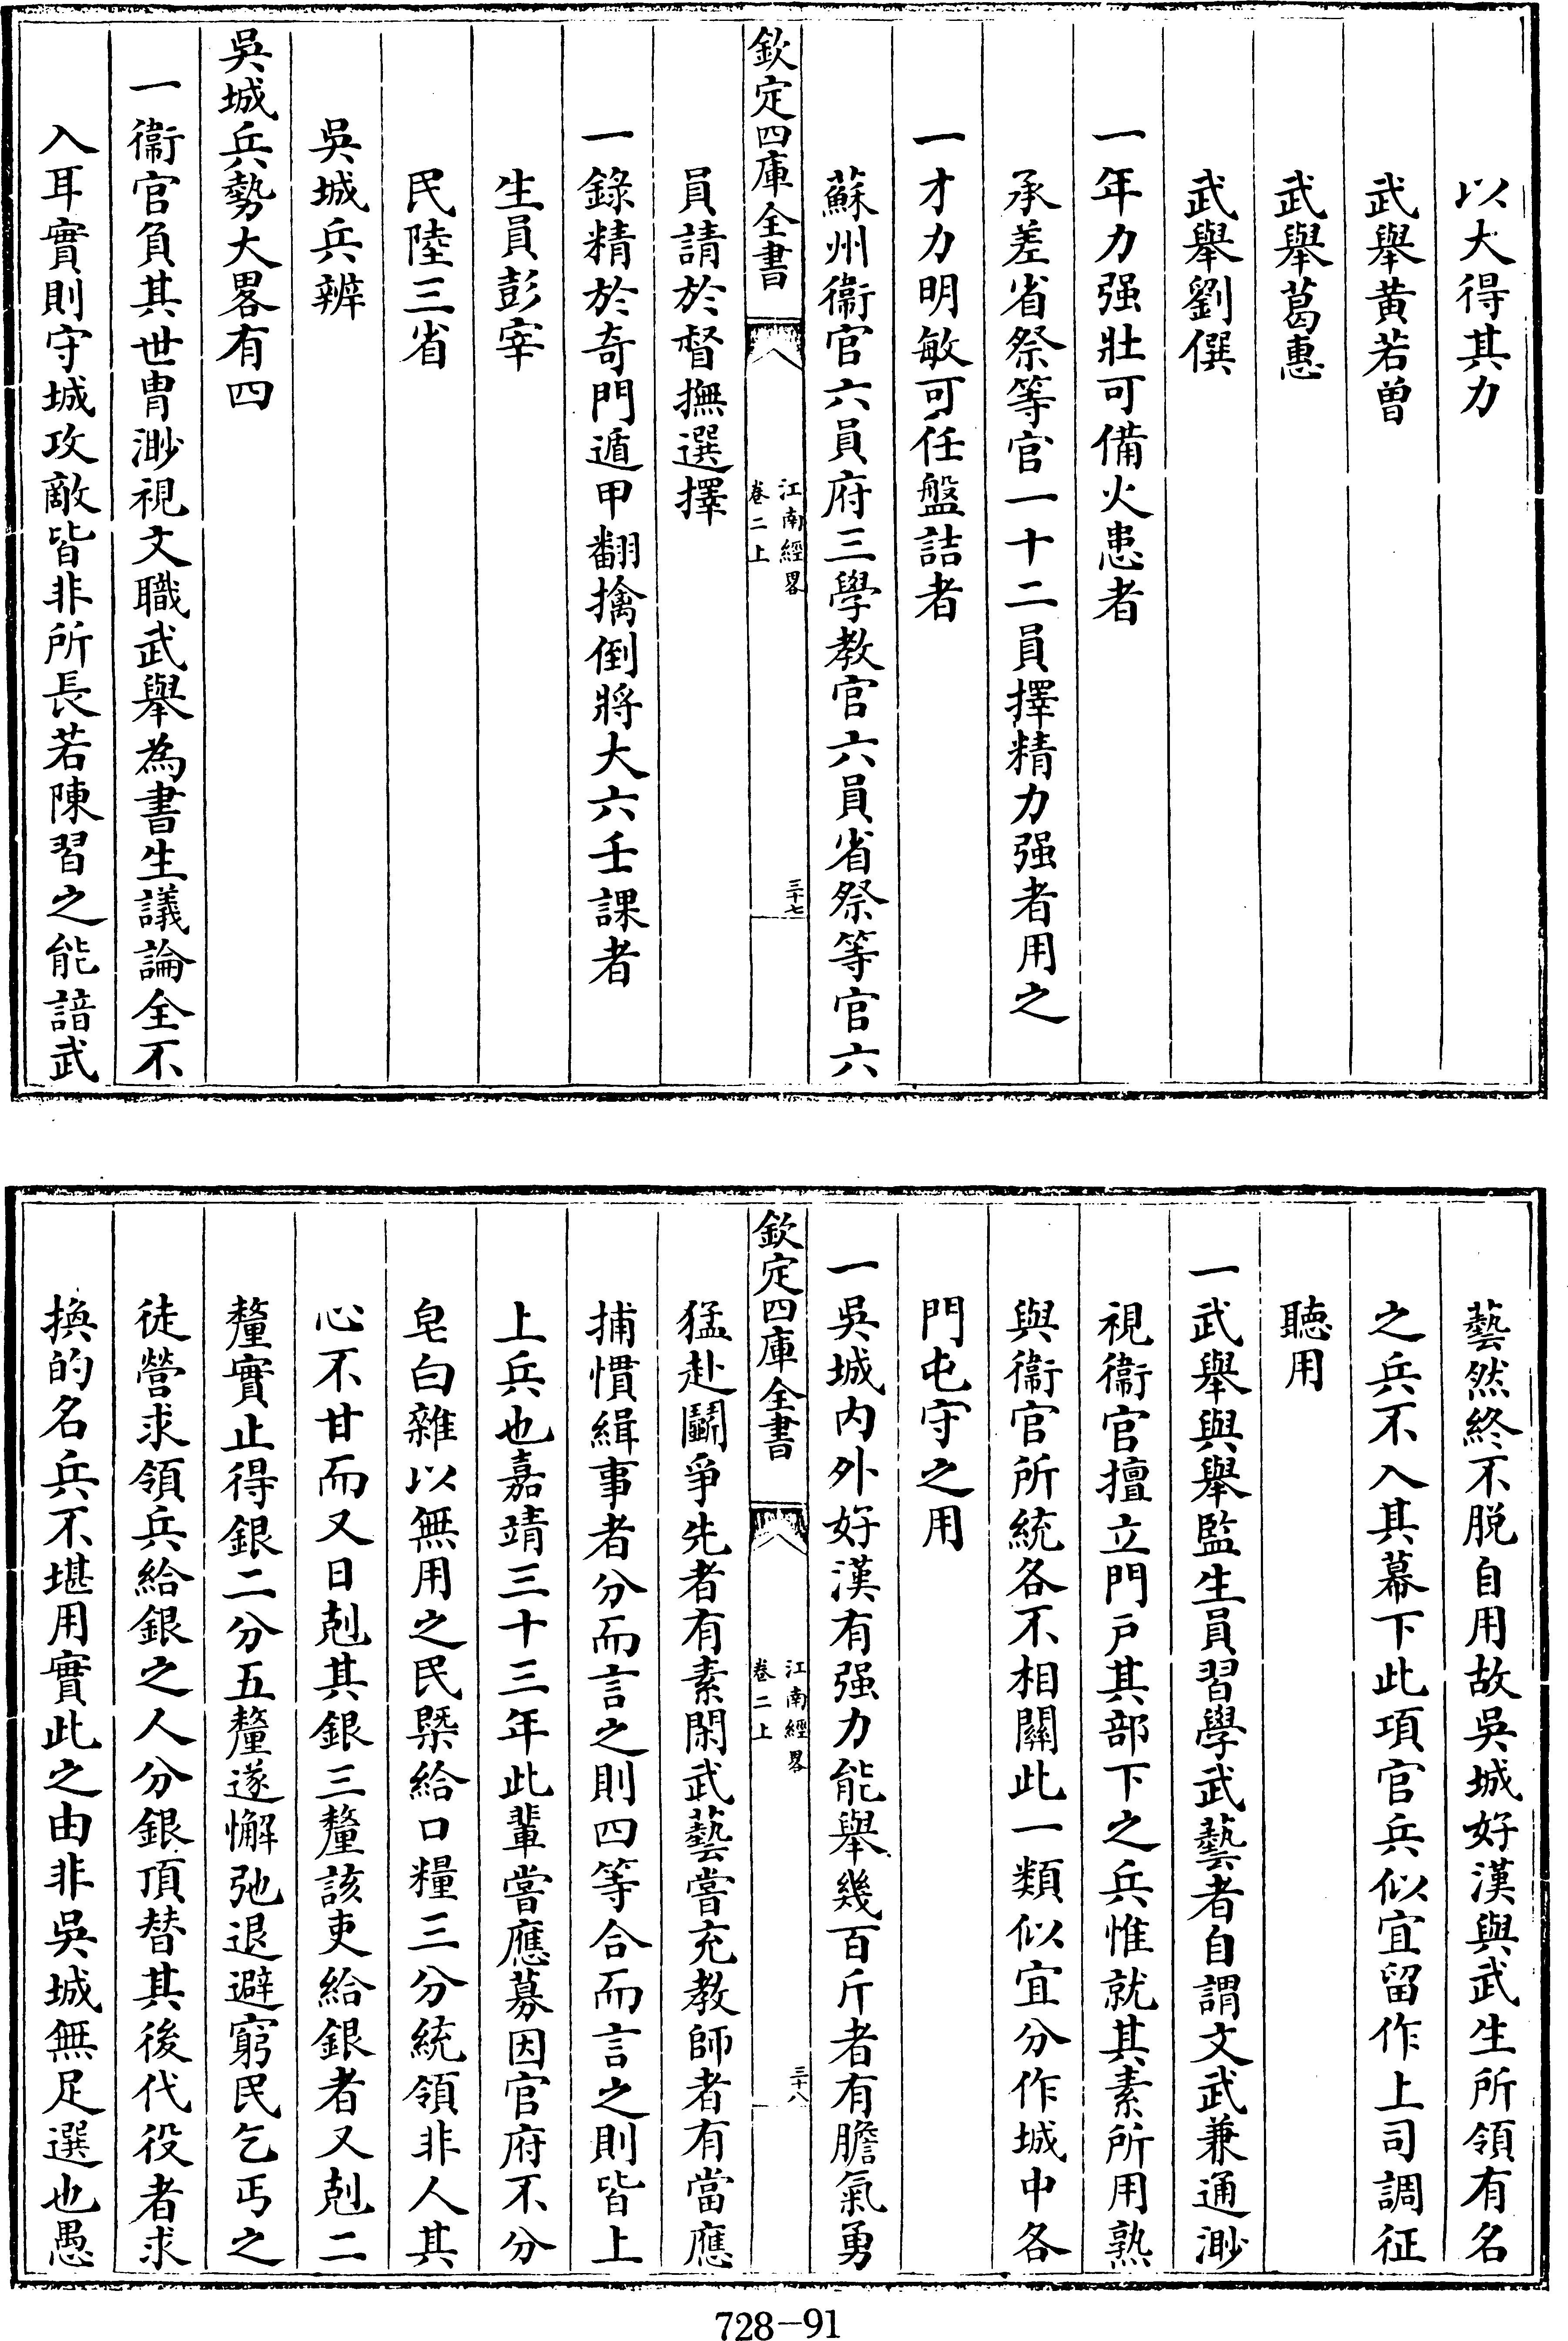 以大得其力
武舉黄若曽
武舉葛惠
武舉劉僎
一年力强壯可備火患者
承差省祭等官一十二員擇精力强者用之
一才力明敏可任盤詰者
蘇州衞官六員府三學教官六員省祭等官六
欽定四庫全書
江南經畧
卷二上
三十七
員請於督撫選擇
一錄精於奇門遁甲翻擒倒將大六壬課者
生員彭宰
民陸三省
吳城兵辨
吳城兵勢大畧有四
一衞官負其世胄渺視文職武舉為書生議論全不
入耳實則守城攻敵皆非所長若陳習之能諳武
藝然終不脱自用故吳城好漢與武生所領有名
之兵不入其幕下此項官兵似宜留作上司調征
聽用
一武舉與舉監生員習學武藝者自謂文武兼通渺
視衞官擅立門戸其部下之兵惟就其素所用熟
與衞官所統各不相關此一類似宜分作城中各
門屯守之用
一吳城内外好漢有强力能舉幾百斤者有膽氣勇
欽定四庫全書
江南經畧
卷二上
三十八
猛赴鬬爭先者有素閑武藝嘗充教師者有當應
捕慣緝事者分而言之則四等合而言之則皆上
上兵也嘉靖三十三年此輩嘗應募因官府不分
皂白雜以無用之民槩給口糧三分統領非人其
心不甘而又日剋其銀三釐該吏給銀者又剋二
釐實止得銀二分五釐遂懈弛退避窮民乞丐之
徒營求領兵給銀之人分銀頂替其後代役者求
換的名兵不堪用實此之由非吳城無足選也愚
728-91